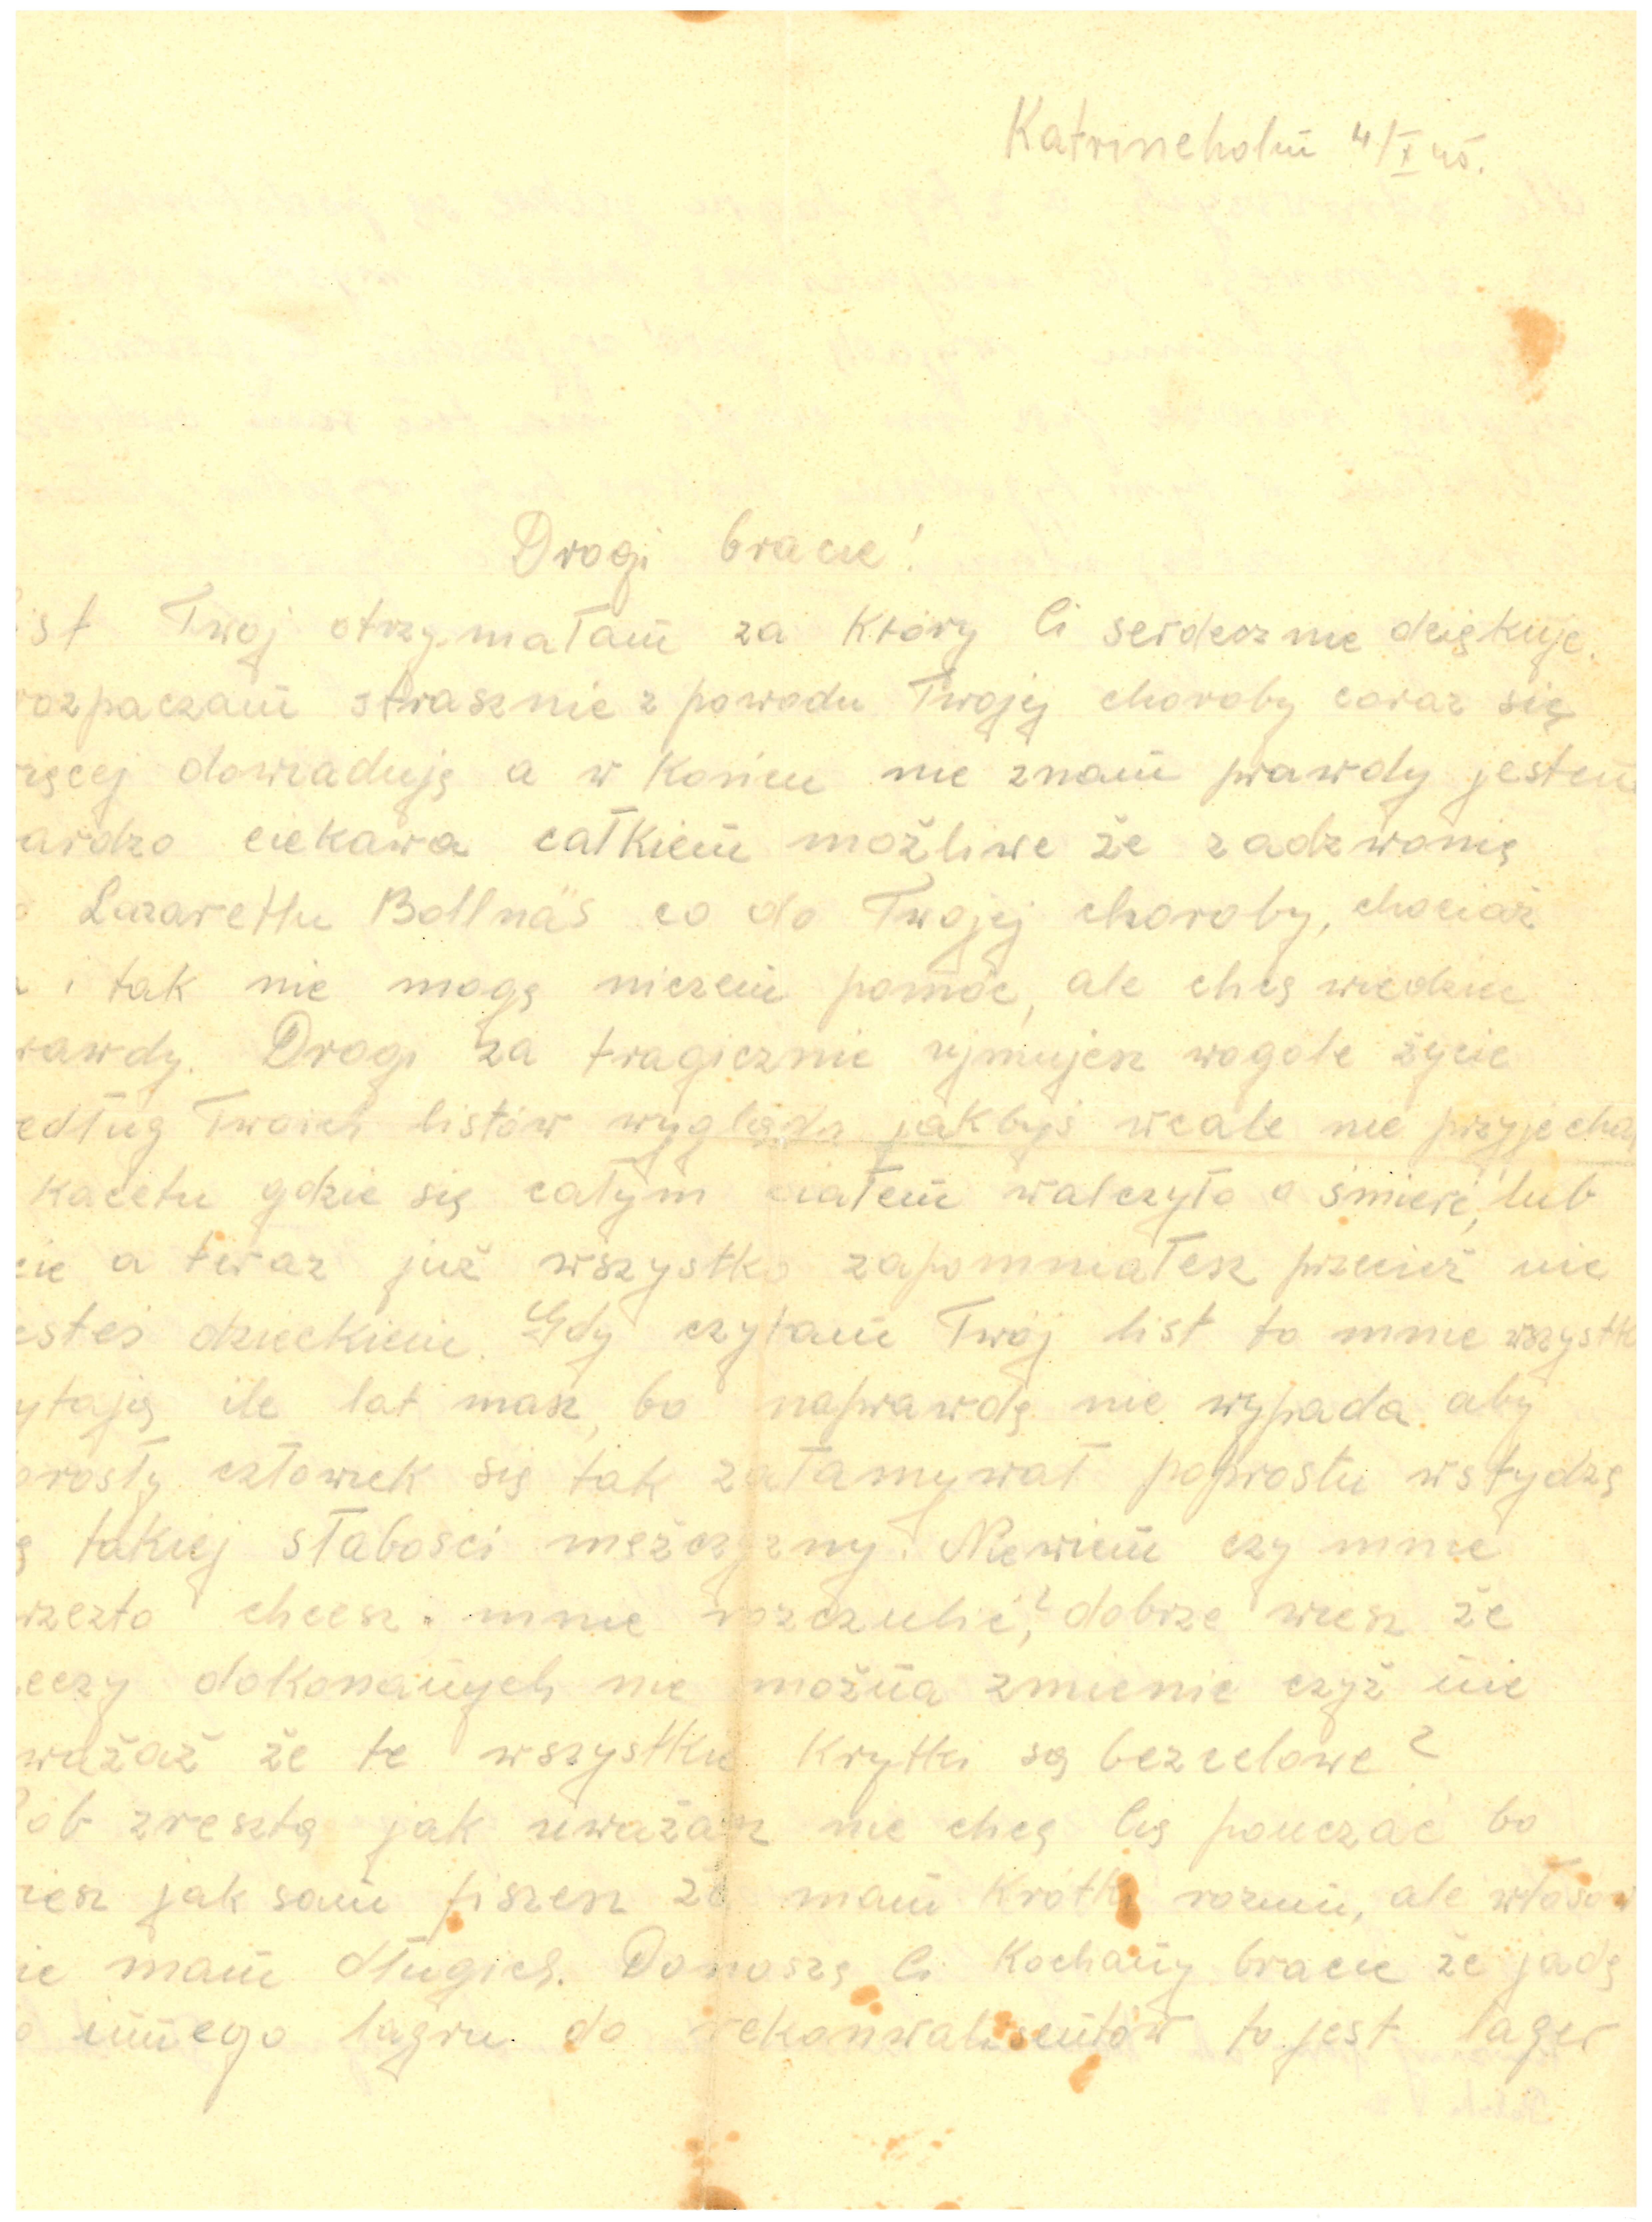 Katrineholm 4/X 45.
Drogi bracie!
ist Twoj otrzymałam za który Ci serdecznie dziękuje.
rozpaczam strasznie z powodu Twojej choroby coraz się
ięcej dowiaduję a w końcu nie znam prawdy jestem
ardzo ciekawa całkiem możliwe że zadzwonię
o Lazarettu Bollnäs co do Twojej choroby, chociaż
a i tak nie mogę niczem pomóc, ale chcę wiedzie
rawdy. Drogi za tragicznie ujmujesz wogole życie
edług Twoich listów wygląda jakbyś wcale nie przyjecha
kacetu gdzie się całym ciałem walczyło o śmierć, lub
cie a teraz już wszystko zapomniałesz przecież nie
esteś dzieckiem. Gdy czytam Twój list to mnie wszystk
ytają ile lat masz, bo naprawdę nie wypada aby
orosły człowiek się tak załamywał poprostu wstydzę
ę takiej słabości męźczyzny. Niewiem czy mnie
rzezto chcesz mnie rozczulić,? dobrze wiesz że
eczy dokonanych nie można zmienic czyż nie
ważaż że te wszystkie krytki są bezcelowe?
ób zresztą jak uważasz nie chcę Cię pouczać bo
iesz jak sam piszesz że mam krótki rozum, ale włosów
ie mam długich. Donoszę Ci kochany bracie że jadę
o innego lagru do rekonwalisentów to jest lager